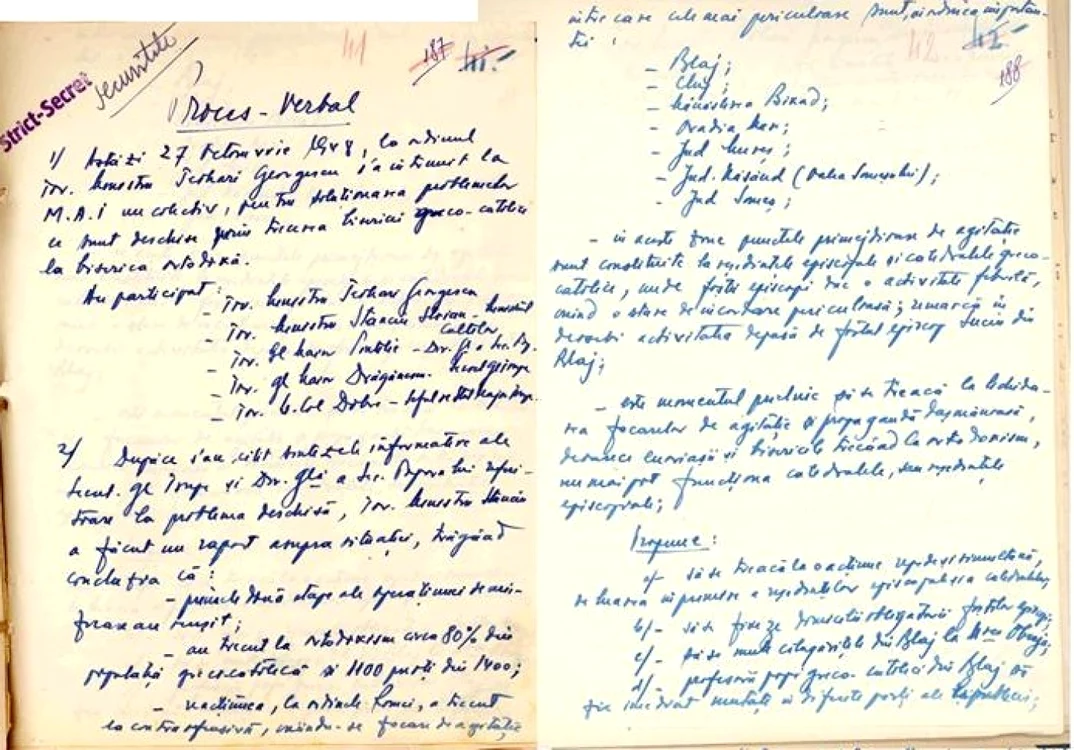 Strict-Secret
Securitate
41
187
Proces-Verbal
1) Astăzi 27 Octomvrie 1948, la ordinul
Tov. Ministru Teohari Georgescu s'a întrunit la
M.A.I un colectiv, pentru soluționarea problemelor
ce sunt deschise prin trecerea bisericii greco-catolici
la biserica ortodoxă.
Au participat:
- Tov. Ministru Teohari Georgescu
- Tov. Ministru Stanciu Stoian - Ministrul
Cultelor
- Tov. Gl. Maior Pintilie - Dir. Gl. a Sec. Pop.
- Tov. Gl Maior Drăgănescu
- Tov. Lt. Col Dobre
2) După ce s'au citit sintezele informative ale
Gl. și Dir. Glă a Sec. Poporului
la problema deschisă, Tov. Ministru Stanciu
a făcut un raport asupra situației, trăgând
concluzia că:
- primele două etape ale operațiunei de uni-
ficare au reușit;
- au trecut la ortodoxism circa 80% din
populația greco-catolică și 1100 preoți din 1400;
- reacțiunea, la ordinele Romei, a trecut
la contraofensivă, creându-se focare de agitație
42
188
între care cele mai periculoase sunt, în ordinea importan-
ții:
- Blaj;
- Cluj;
- Mănăstirea Bixad;
- Oradia Mare;
- Jud Mureș;
- Jud. Năsăud (Valea Someșului);
- Jud Someș;
- în aceste zone punctele primejdioase de agitație
sunt constituite la reședințele episcopale și catedralele greco-
catolice, unde foștii episcopi duc o activitate febrilă,
creind o stare de încordare periculoasă; remarcă în
deosebi activitatea depusă de fostul episcop Suciu din
Blaj;
- este momentul prielnic să se treacă la lichida-
rea focarelor de agitație și propagandă dușmănoasă,
deoarece și bisericile trecând la ortodoxism,
nu mai pot funcționa catedralele, sau reședințele
episcopale;
Propune:
a/- să se treacă la o acțiune repede și simultană,
de luarea în primire a reședințelor episcopale și a catedralelor;
b/- să se fixeze domicilii obligatorii foștilor episcopi;
c/- să se mute călugărițele din Blaj la Obreja;
d/- profesorii popi greco-catolici din Blaj să
fie imediat mutați în diferite părți ale Republicii;